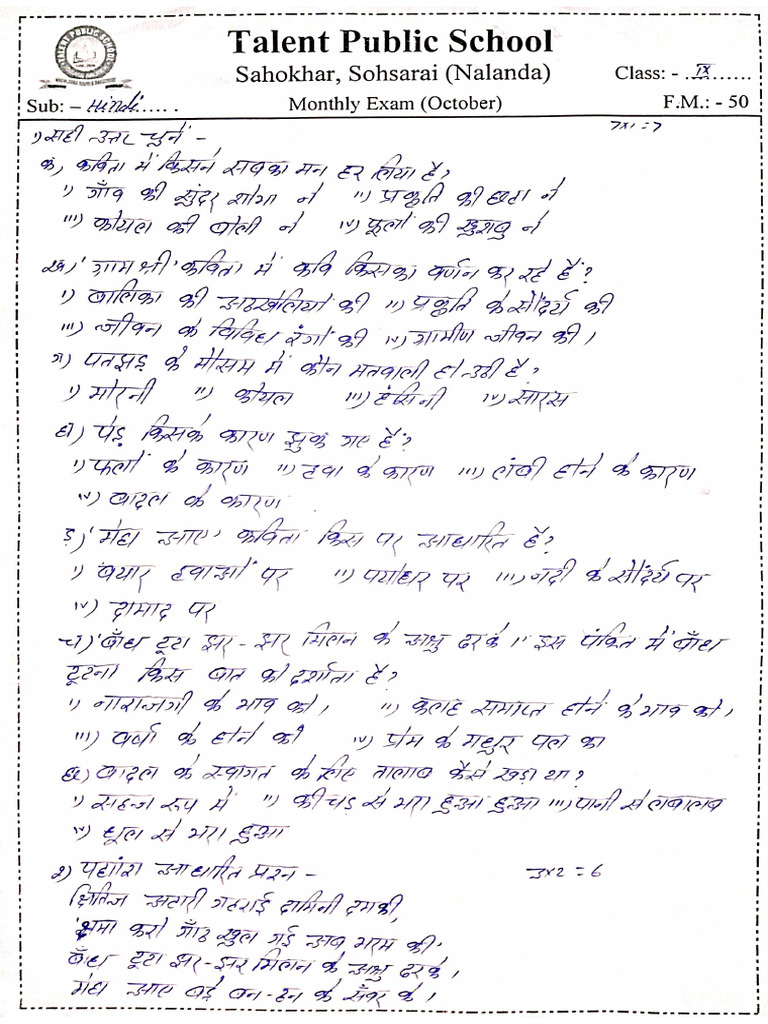 Talent Public School
Sahokhar, Sohsarai (Nalanda)
Class: - .IX.........
Sub: – Hindi..... .
Monthly Exam (October)
F.M.: - 50
7x1=7
1) सही उत्तर चुनें -
क) कविता में किसने सबका मन हर लिया है?
i) गाँव की सुंदर शोभा ने ii) प्रकृति की छटा ने
iii) कोयल की बोली ने iv) फूलों की खुशबु ने
ख) 'ग्राम श्री' कविता में कवि किसका वर्णन कर रहे हैं?
i) बालिका की अठखेलियों की ii) प्रकृति के सौंदर्य की
iii) जीवन के विविध रंगों की iv) ग्रामीण जीवन की।
ग) पतझड़ के मौसम में कौन मतवाली हो उठी है?
i) मोरनी ii) कोयल iii) हंसिनी iv) सारस
घ) पेड़ किसके कारण झुक गए हैं?
i) फलों के कारण ii) हवा के कारण iii) लंबी होने के कारण
iv) बादल के कारण
ड़) 'मेघ आए' कविता किस पर आधारित है?
i) बयार हवाओं पर ii) पयोधर पर iii) नदी के सौंदर्य पर
iv) दामाद पर
च) 'बाँध टूटा झर-झर मिलन के अश्रु ढरके।' इस पंक्ति में 'बाँध
टूटना किस बात को दर्शाता है?
i) नाराजगी के भाव को। ii) कलह समाप्त होने के भाव को।
iii) वर्षा के होने को iv) प्रेम के मधुर पल का
छ) बादल के स्वागत के लिए तालाब कैसे खड़ा था?
i) सहज रूप में ii) कीचड़ से भरा हुआ हुआ iii) पानी से लबालब
iv) धूल से भरा हुआ
2) पद्यांश आधारित प्रश्न - 3x2 = 6
क्षितिज अटारी गहराई दामिनी दमकी,
'क्षमा करो गाँठ खुल गई अब भरम की'
बाँध टूटा झर-झर मिलन के अश्रु ढरके।
मेघ आए बड़े बन-ठन के सँवर के।